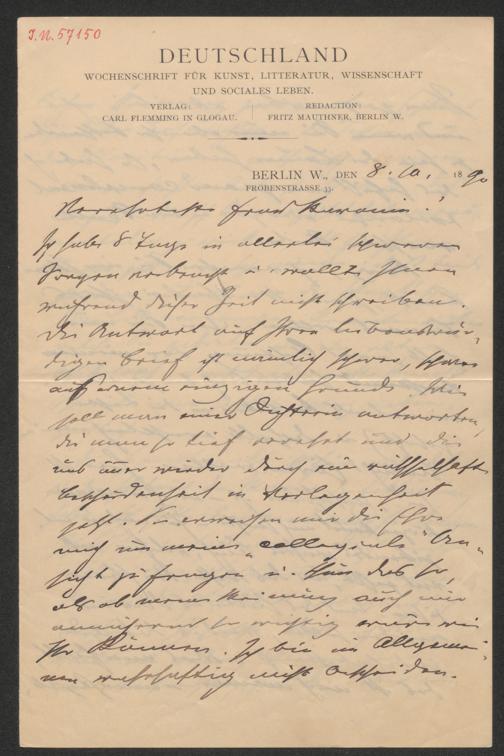 J.N. 57150
DEUTSCHLAND
WOCHENSCHRIFT FÜR KUNST, LITTERATUR, WISSENSCHAFT
UND SOCIALES LEBEN.
VERLAG:
CARL FLEMMING IN GLOGAU.
REDACTION:
FRITZ MAUTHNER, BERLIN W.
BERLIN W., DEN 8. 10. 1890
FROBENSTRASSE 33.
Verehrteste Frau Baronin!
Ich habe 8 Tage in allerlei schweren
Sorgen verbracht u. wollte Ihnen
während dieser Zeit nicht schreiben.
Die Antwort auf Ihren liebenswür-
digen Brief ist nämlich schwer, schwer
aus einem einzigen Grunde. Wie
soll man einer Dichterin antworten,
die man so tief verehrt und die
uns immer wieder durch eine räthselhafte
Bescheidenheit in Verlegenheit
setzt. Sie erweisen mir die Ehre
mich um meine „collegiale" An-
sicht zu fragen u. thun das so,
als ob meine Meinung auch nur
annähernd so wichtig wäre wie
Ihr Können. Ich bin im Allgemei-
nen wahrhaftig nicht bescheiden.